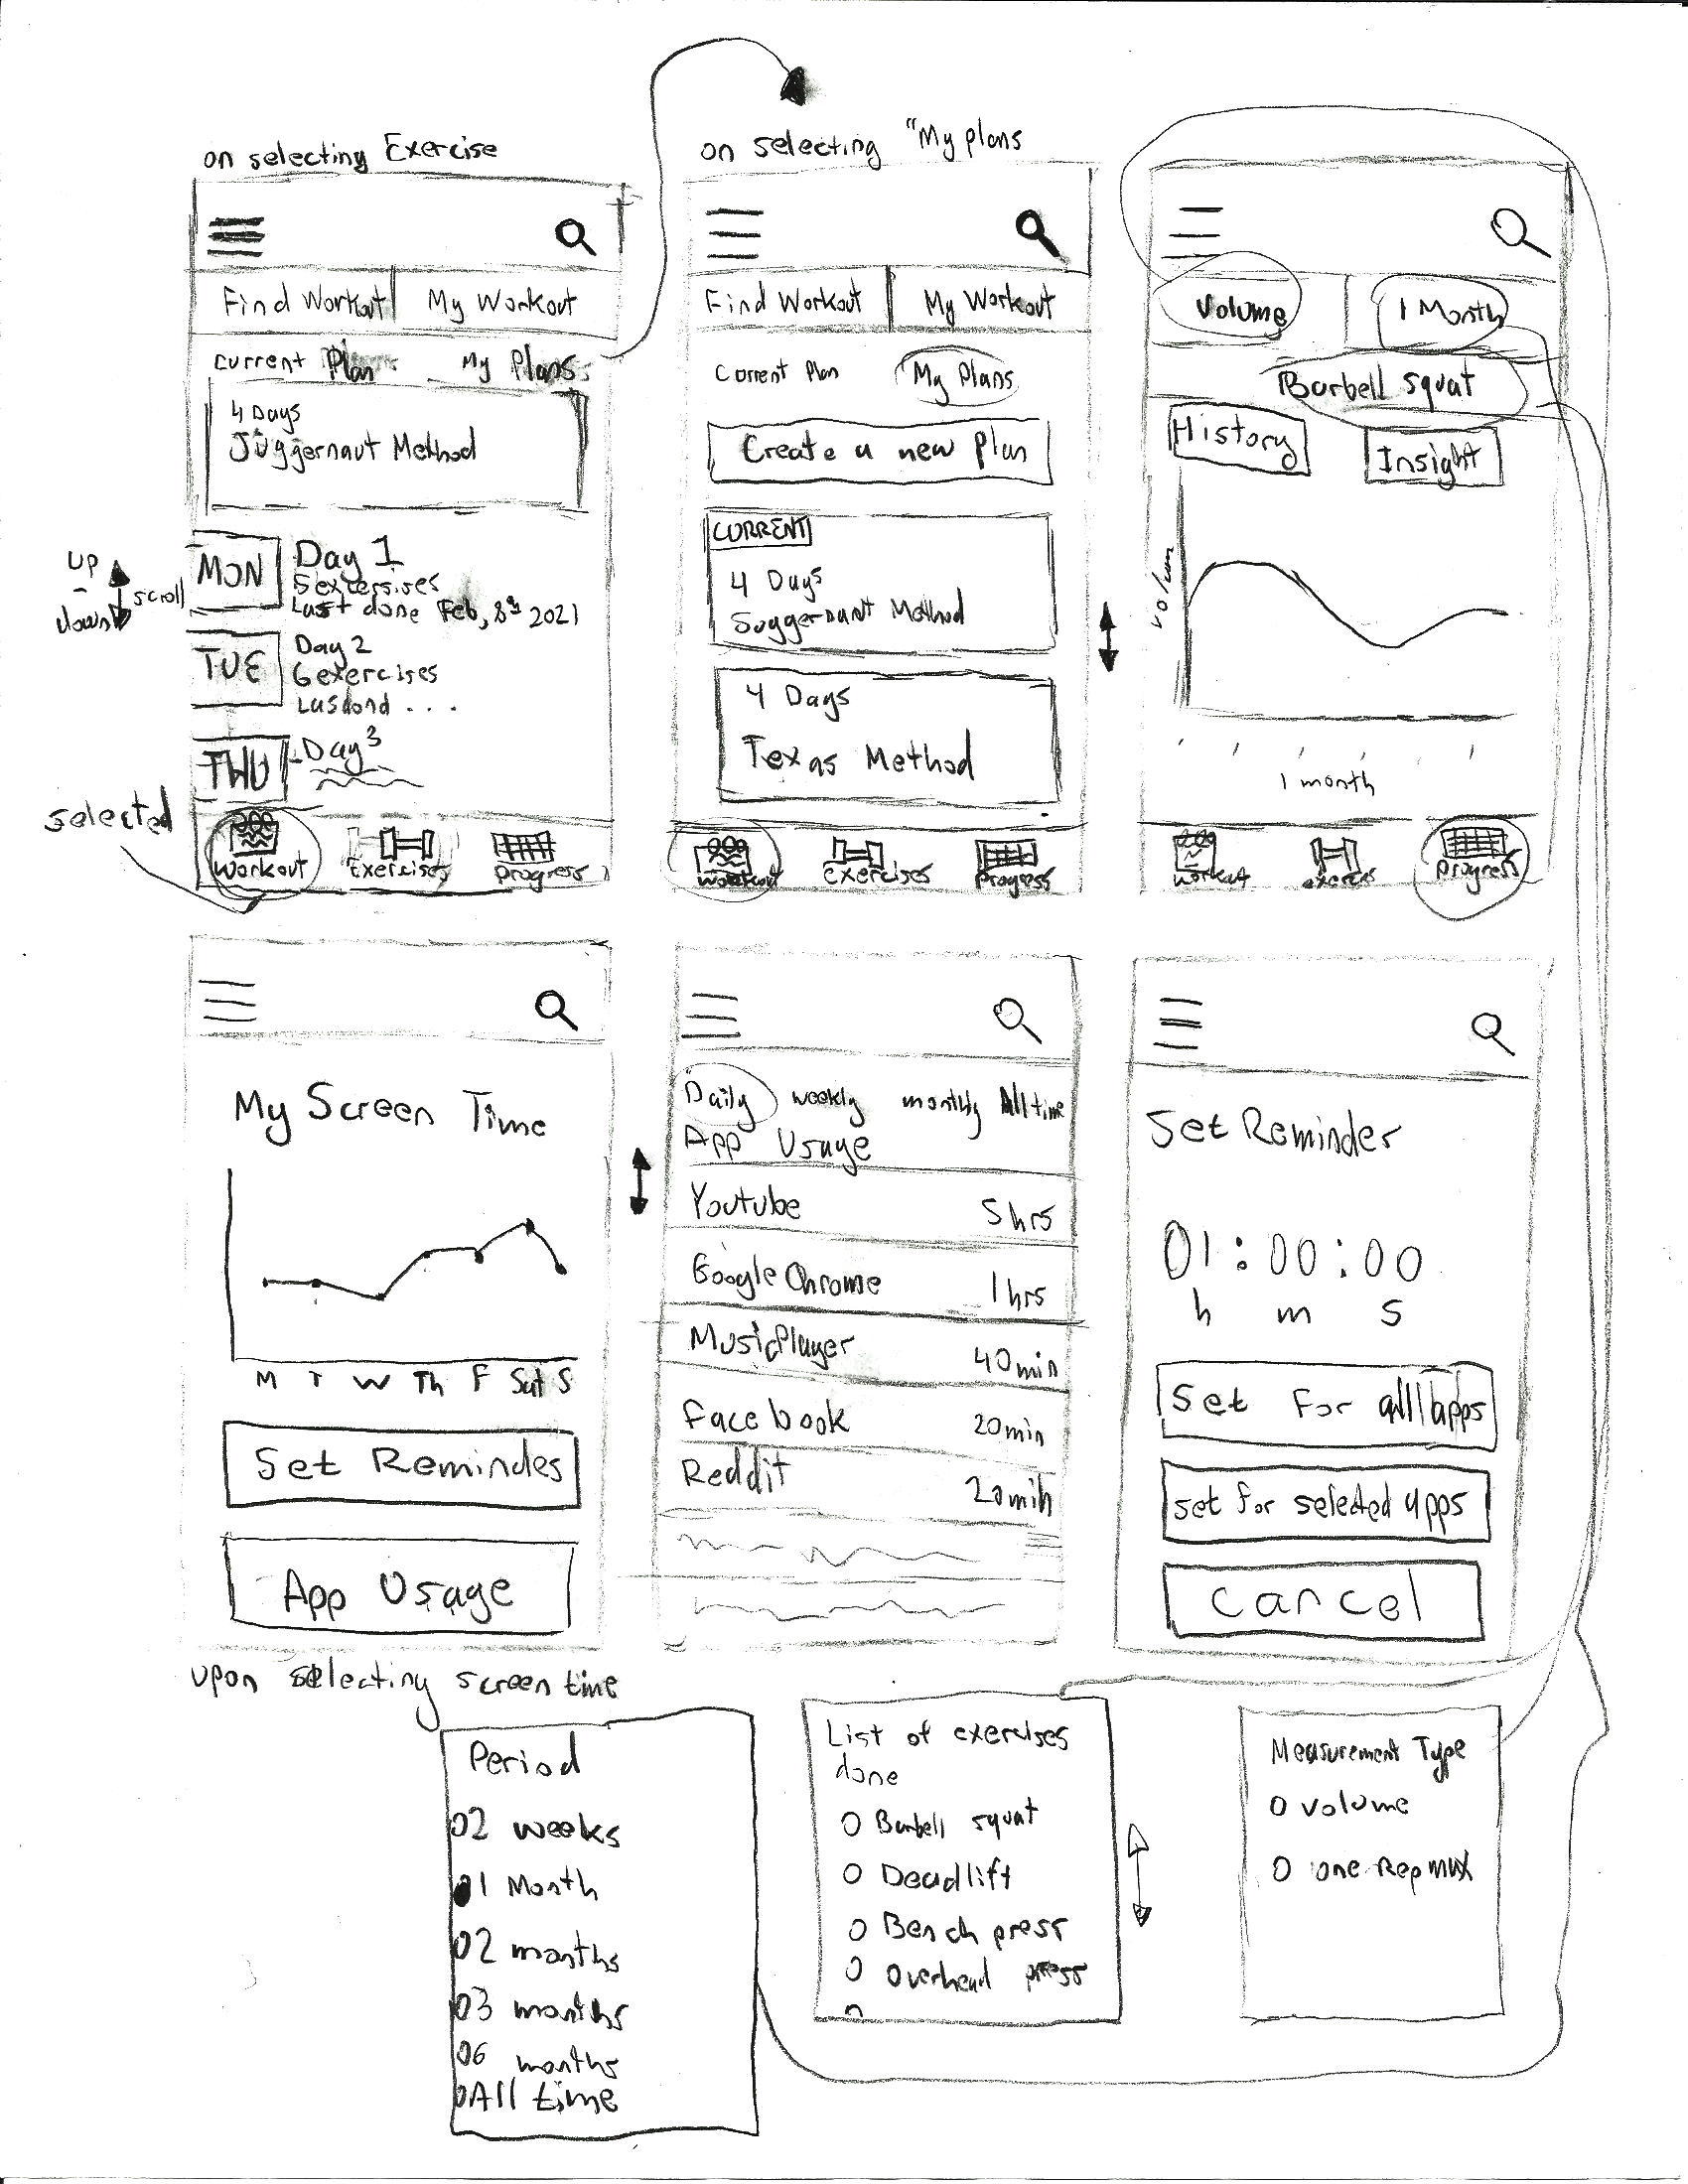 on selecting Exercise
Find Workout My Workout
Current Plan My Plans
4 Days
Juggernaut Method
UP
-
down
scroll
MON
Day 1
5 exersises
Last done Feb, 8th 2021
TUE
Day 2
6 exercises
Lasdond ...
THU
Day 3
selected
Workout Exercises progress
on selecting "My plans
Find Workout My Workout
Current Plan My Plans
Create a new plan
CURRENT
4 Days
Juggernaut Method
4 Days
Texas Method
Workout exercises progress
Volume 1 Month
Barbell squat
History Insight
volum
1 month
workout Progress
My Screen Time
M T W Th F Sat S
Set Remindes
App Usage
upon selecting screen time
Daily weekly monthly All time
App Usage
Youtube 5 hrs
Google Chrome 1 hrs
Music Player 40 min
Facebook 20 min
Reddit 20 min
Set Reminder
01:00:00
h m s
Set For all apps
set for selected apps
cancel
Period
O 2 weeks
1 Month
O 2 months
O 3 months
O 6 months
O All time
List of exercises
done
O Barbell squat
O Deadlift
O Bench press
O Overhead press
Measurement Type
O volume
O one Rep max